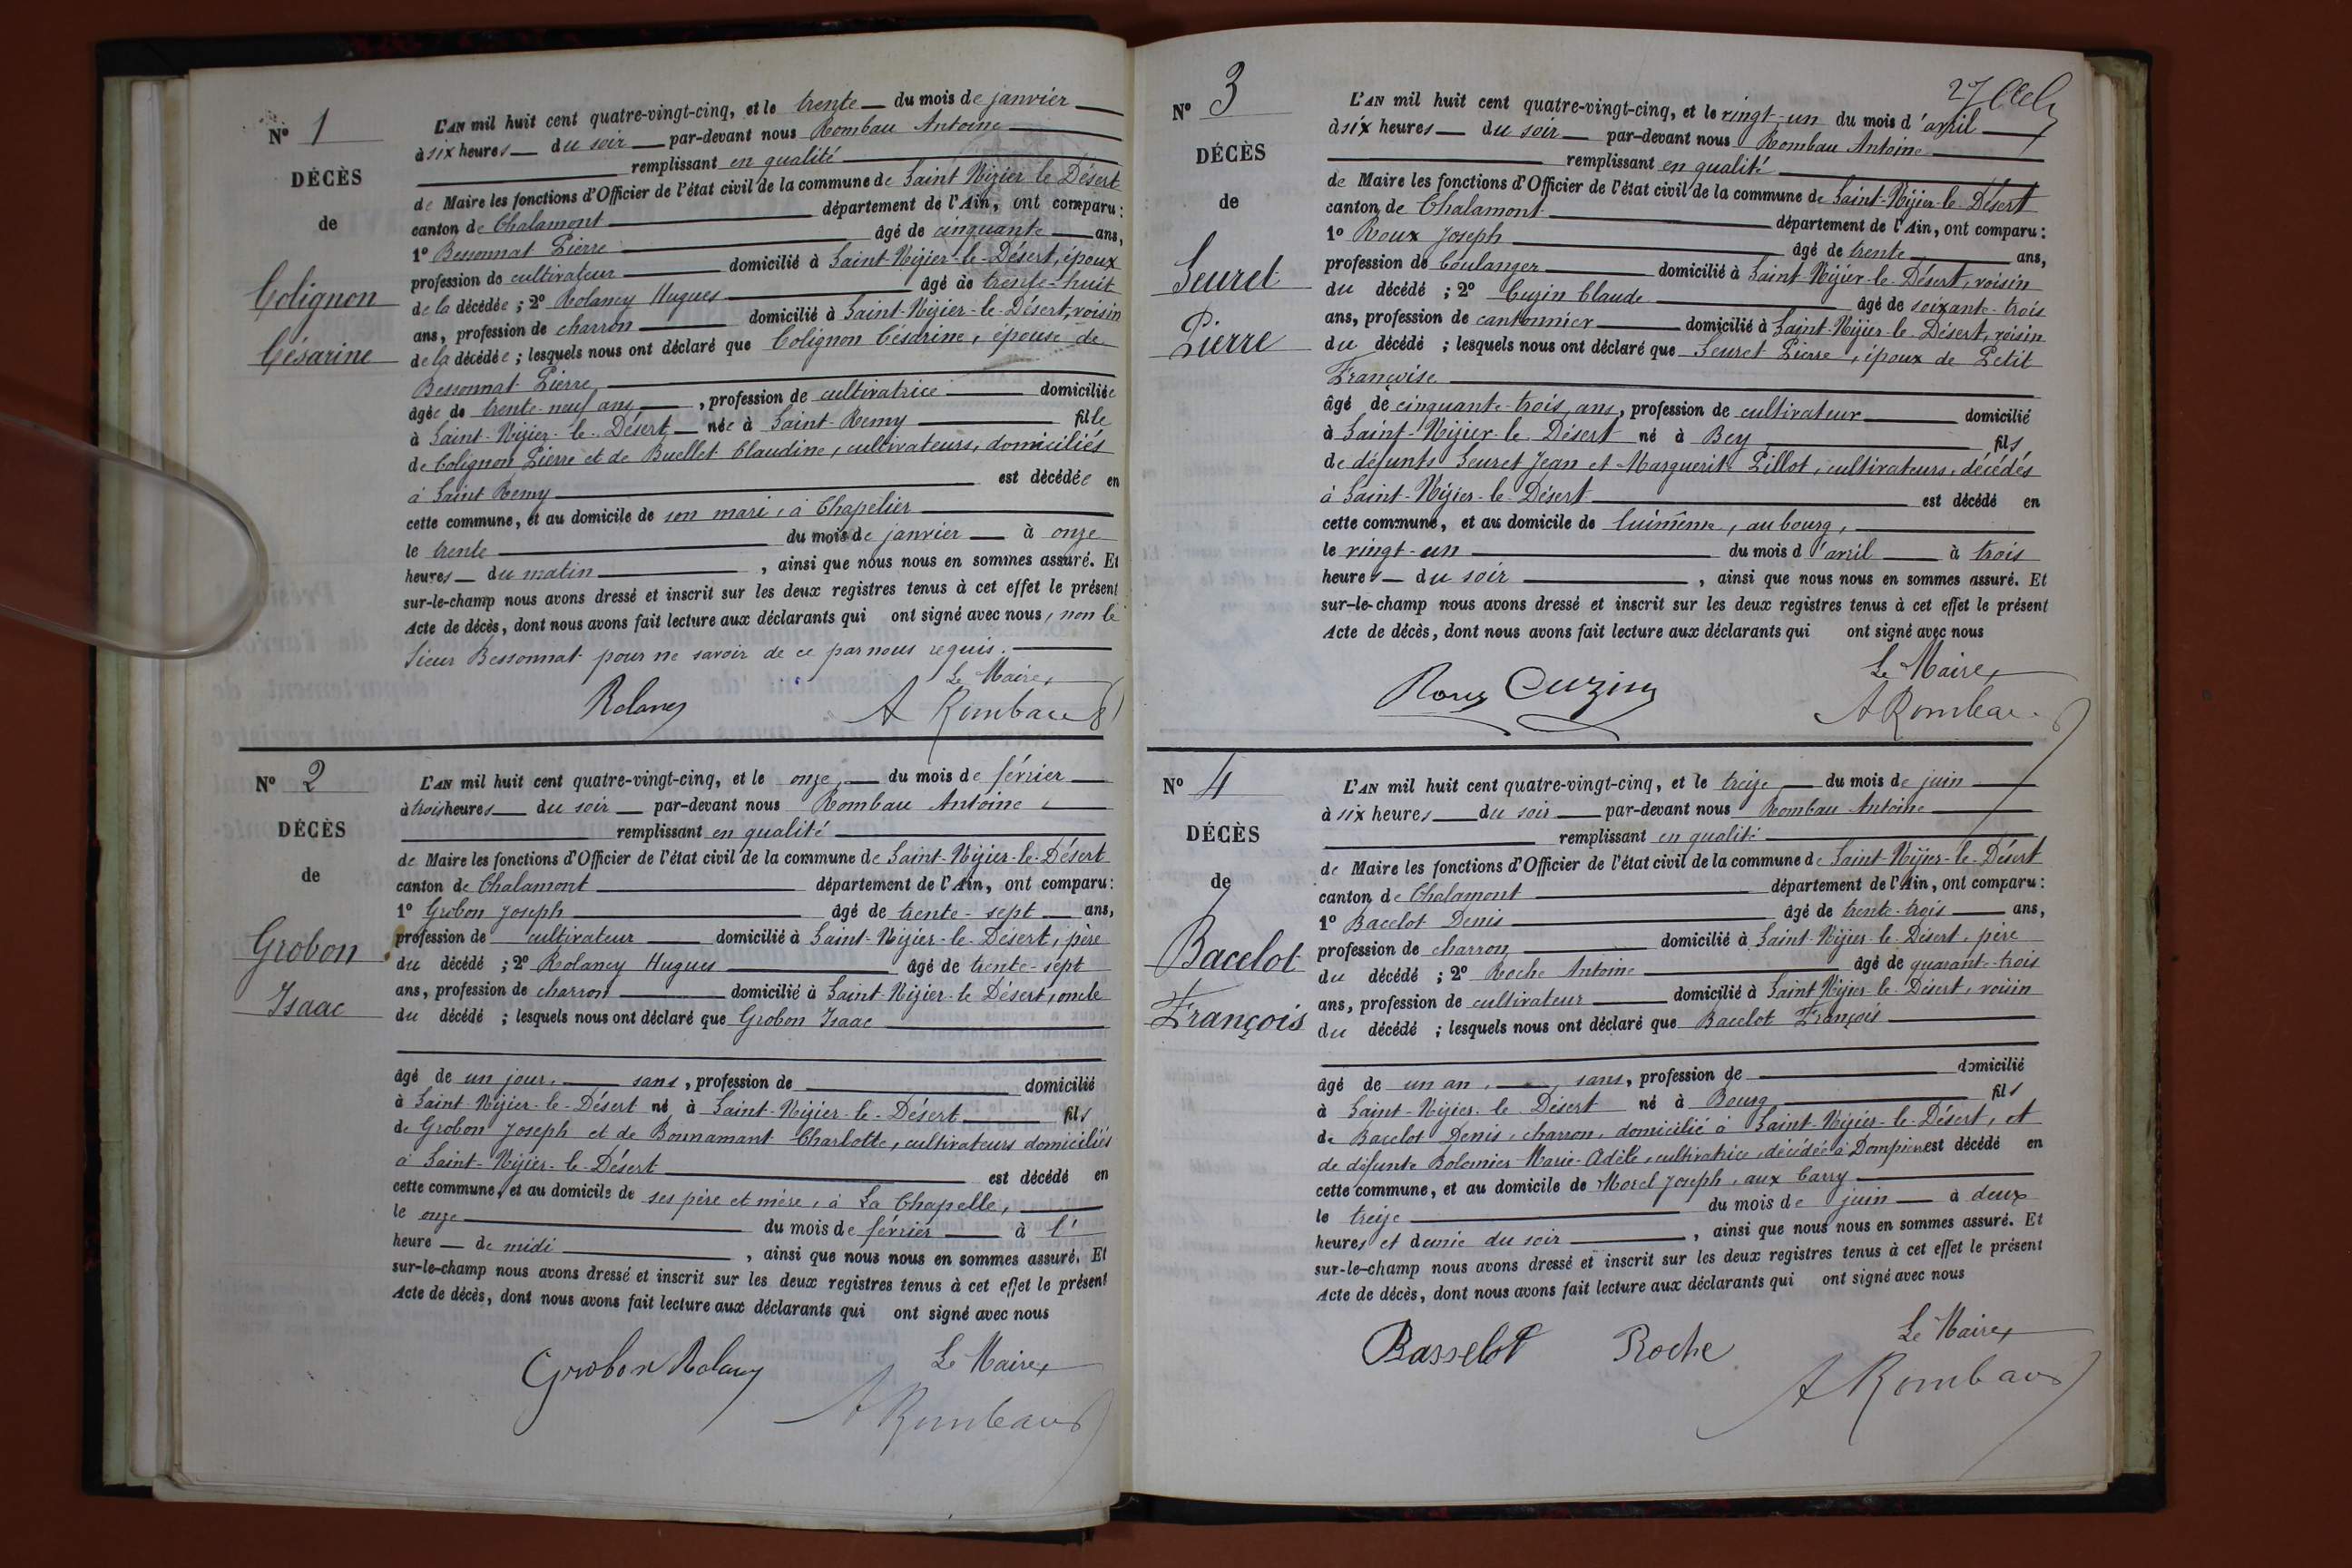 N° 1
DÉCÈS
de
Colignon
Césarine
L'AN mil huit cent quatre-vingt-cinq, et le trente du mois de janvier
à six heures du soir par-devant nous Rombau Antoine
remplissant en qualité
de Maire les fonctions d'Officier de l'état civil de la commune de Saint Nizier le Désert
canton de Chalamont département de l'Ain, ont comparu :
1° Bessonnat Pierre âgé de cinquante ans,
profession de cultivateur domicilié à Saint-Nizier-le-Désert, époux
de la décédée ; 2° Rolancy Hugues âgé de trente-huit
ans, profession de charron domicilié à Saint-Nizier-le-Désert, voisin
de la décédée ; lesquels nous ont déclaré que Colignon Césarine, épouse de
Bessonnat Pierre,
âgée de trente-neuf ans, profession de cultivatrice domiciliée
à Saint-Nizier-le-Désert née à Saint-Remy fille
de Colignon Pierre et de Buellet Claudine, cultivateurs, domiciliés
à Saint Remy est décédée en
cette commune, et au domicile de son mari, à Chapelier
le trente du mois de janvier à onze
heures du matin, ainsi que nous nous en sommes assuré. Et
sur-le-champ nous avons dressé et inscrit sur les deux registres tenus à cet effet le présent
Acte de décès, dont nous avons fait lecture aux déclarants qui ont signé avec nous, non le
Sieur Bessonnat pour ne savoir de ce par nous requis.
Le Maire,
Rolancy A Rombau
N° 2
DÉCÈS
de
Grobon
Isaac
L'AN mil huit cent quatre-vingt-cinq, et le onze, du mois de février
à trois heures du soir par-devant nous Rombau Antoine,
remplissant en qualité
de Maire les fonctions d'Officier de l'état civil de la commune de Saint-Nizier-le-Désert
canton de Chalamont département de l'Ain, ont comparu :
1° Grobon Joseph âgé de trente-sept ans,
profession de cultivateur domicilié à Saint-Nizier-le-Désert, père
du décédé ; 2° Rolancy Hugues âgé de trente-sept
ans, profession de charron domicilié à Saint-Nizier-le-Désert, oncle
du décédé ; lesquels nous ont déclaré que Grobon Isaac
âgé de un jour, sans, profession de domicilié
à Saint-Nizier-le-Désert né à Saint-Nizier-le-Désert fils
de Grobon Joseph et de Bonnamant Charlotte, cultivateurs domiciliés
à Saint-Nizier-le-Désert est décédé en
cette commune, et au domicile de ses père et mère, à La Chapelle,
le onze du mois de février à l'
heure de midi, ainsi que nous nous en sommes assuré. Et
sur-le-champ nous avons dressé et inscrit sur les deux registres tenus à cet effet le présent
Acte de décès, dont nous avons fait lecture aux déclarants qui ont signé avec nous
Le Maire,
Grobon Rolancy
A Rombau
27
N° 3
DÉCÈS
de
Seuret
Pierre
L'AN mil huit cent quatre-vingt-cinq, et le vingt-un du mois d'avril
à six heures du soir par-devant nous Rombau Antoine
remplissant en qualité
de Maire les fonctions d'Officier de l'état civil de la commune de Saint-Nizier-le-Désert
canton de Chalamont département de l'Ain, ont comparu :
1° Roux Joseph âgé de trente ans,
profession de boulanger domicilié à Saint-Nizier-le-Désert, voisin
du décédé ; 2° Cuzin Claude âgé de soixante-trois
ans, profession de cantonnier domicilié à Saint-Nizier-le-Désert, voisin
du décédé ; lesquels nous ont déclaré que Seuret Pierre, époux de Petit
Françoise
âgé de cinquante-trois ans, profession de cultivateur domicilié
à Saint-Nizier-le-Désert né à Bey fils
de défunts Seuret Jean et Marguerite Pillot, cultivateurs, décédés
à Saint-Nizier-le-Désert est décédé en
cette commune, et au domicile de lui même, au bourg,
le vingt-un du mois d'avril à trois
heures du soir, ainsi que nous nous en sommes assuré. Et
sur-le-champ nous avons dressé et inscrit sur les deux registres tenus à cet effet le présent
Acte de décès, dont nous avons fait lecture aux déclarants qui ont signé avec nous
Le Maire,
Roux Cuzin A Rombau
N° 4
DÉCÈS
de
Bacelot
François
L'AN mil huit cent quatre-vingt-cinq, et le treize du mois de juin
à six heures du soir par-devant nous Rombau Antoine
remplissant en qualité
de Maire les fonctions d'Officier de l'état civil de la commune de Saint-Nizier-le-Désert
canton de Chalamont département de l'Ain, ont comparu :
1° Bacelot Denis âgé de trente-trois ans,
profession de charron domicilié à Saint-Nizier-le-Désert, père
du décédé ; 2° Roche Antoine âgé de quarante-trois
ans, profession de cultivateur domicilié à Saint Nizier-le-Désert, voisin
du décédé ; lesquels nous ont déclaré que Bacelot François
âgé de un an, sans, profession de domicilié
à Saint-Nizier-le-Désert né à Bourg fils
de Bacelot Denis, charron, domicilié à Saint-Nizier-le-Désert, et
de défunte Bolomier Marie-Adèle, cultivatrice, décédée à Dompierre est décédé en
cette commune, et au domicile de Morel Joseph, aux Carry
le treize du mois de juin à deux
heures et demie du soir, ainsi que nous nous en sommes assuré. Et
sur-le-champ nous avons dressé et inscrit sur les deux registres tenus à cet effet le présent
Acte de décès, dont nous avons fait lecture aux déclarants qui ont signé avec nous
Le Maire,
Basselot Roche
A Rombau